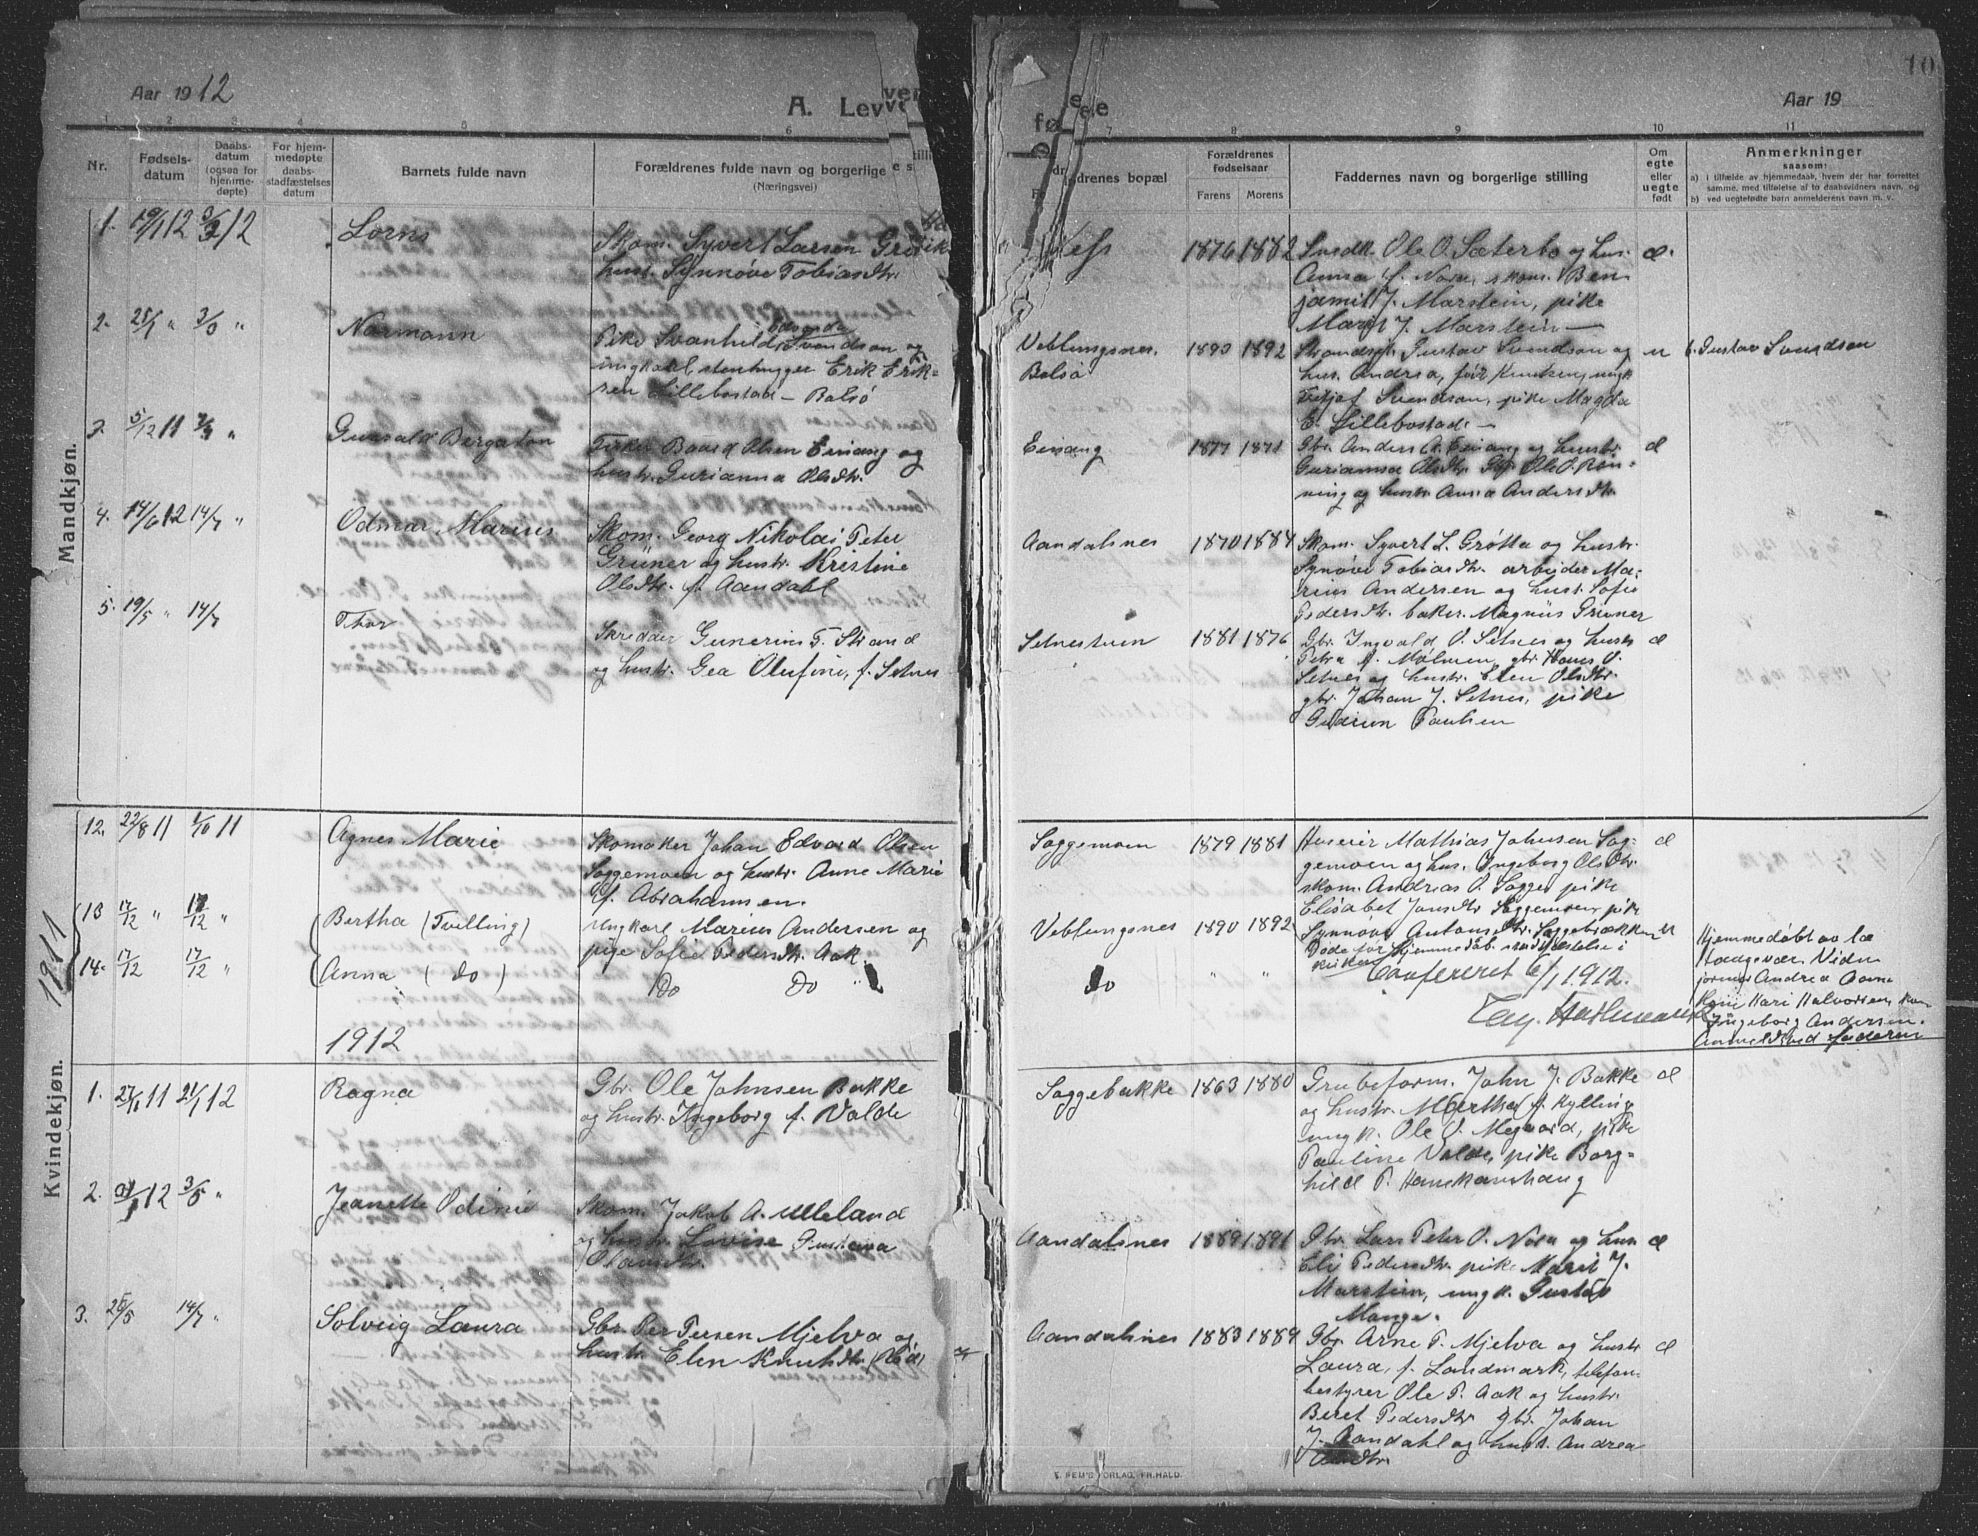 Aar 1912
A. Lev
ve
fø
e
ee
Aar 19
10
1 2 3 4 5 6 7 8 9 10 11
Nr.
Fødsels-
datum
Daabs-
datum
(ogsaa for
hjemme-
døpte)
For hjem-
medøpte
daabs-
stadfæstelses
datum
Barnets fulde navn
Forældrenes fulde navn og borgerlige stilling
(Næringsvei)
drenes bopæl
Forældrenes
fødselsaar
Farens Morens
Faddernes navn og borgerlige stilling
Om
egte
eller
uegte
født
Anmerkninger
saasom:
a) i tilfælde av hjemmedaab, hvem der har forrettet
samme, med tilføielse af to daabsvidners navn, og
b) ved uegtefødte barn anmelderens navn m. v.
Mandkjøn.
1. 19/1 12 3/3 12 Lorns
Skom. Syvert Larsen
hust. Synnøve Tobiasdtr.
1876 1882
Ole O. Sæterbø og hus.
Anna f. Nora, skom. Ben
jamin J. Marstein, pike
Marit J. Marstein
2. 25/1 " 3/3 " Normann
Pike Svanhild Svendsen og
ungkarl, stenhugger Erik Erik-
sen Lillebostad - Bolsø
Veblungsnes.
Bolsø
1890 1892
Strandsp. Gustav Svendsen og
hus. Andrea, før Knutsen, ungk.
Fritjof Svendsen, pike Magda
E. Lillebostad
u
b. Gustav Svendsen
3. 5/12 11 "
Fisker Baard Olsen Einang og
hustr. Gurianna Olsdtr.
Einang
1877 1871
Gbr. Anders A. Einang og hustr.
Gurianna Olsdtr. Gbr. Ole O. Røn-
ning og hustr. Anna Andersdtr.
4. 14/6 12 14/7 " Odmar Marius
Skom. Georg Nikolai Peter
Grüner og hustr. Kristine
Olsdtr. f. Aandahl
Aandalsnes
1870 1884
Skom. Syvert L. Grøtta og hustr.
Synøve Tobiasdtr. arbeider Ma-
rius Andersen og hust. Sofie
Pedersdtr. baker Magnus Grüner
5. 19/5 " 14/7 Thor
Skrædder Gunerius T. Strand
og hustr. Gea Olufine, f. Setnes
Setnestuen
1881 1876
Gbr. Ingvald O. Setnes og hustr.
Petra f. Mølmen, gbr. Hans O.
Setnes og hustr. Elen Olsdtr.
gbr. Johan J. Setnes, pike
Gudrun Paulsen
1911
12. 22/8 11 1/10 11 Agnes Marie
Skomaker Johan Edvard Olsen
Soggemoen og hustr. Anne Marie
f. Abrahamsen.
Soggemoen
1879 1881
Huseier Mathias Johnsen Sog-
gemoen og hus. Ingeborg Olsdtr.
skom. Andreas O. Sogge, pike
Elisabet Jonsdtr. Soggemoen, pike
Synnøve Antonsdtr. Soggebakken
13 17/12 " 17/12 " Bertha (Tvilling)
Ungkarl Marius Andersen og
pige Sofie Pedersdtr. Aak.
Veblungsnes
1890 1892
Døde før hjemmedaab. stadfæstelse i
kirken
14. 17/12 17/12 " Anna (do)
Do Do "
do
" "
Confereret 6/1 1912.
Hjemmedøbt av
Vidn
jormor Andrea Aarne
Kone Kari Halvorsen, kone
Ingeborg Andersen.
Anmeldt ved faderen
1912
Kvindekjøn.
1. 27/11 11 21/1 12 Ragna
Gbr. Ole Johnsen Bakke
og hustr. Ingeborg f. Valde
Soggebakke
1863 1880
Grubeform. John J. Bakke
og hustr. Martha f. Kylling
ungk. Ole O. Megaard, pike
Pauline Valde, pike Borg-
hild P. Hanekamhaug
2. 12 3/5 " Jeanette Odinie
Skom. Jakob A. Ulleland
og hustr. Lovise Gustava
Olausdtr.
Aandalsnes
1889 1891
Gbr. Lars Peter O. Nora og hus
Eli Pedersdtr. pike Marit J.
Marstein, ungk. Gustav
Monge.
3. 26/5 14/7 " Solveig Laura
Gbr. Per Persen Mjelva og
hustr. Elen Knutsdtr.
Aandalsnes
1883 1889
Gbr. Arne P. Mjelva og hustr
Laura, f. Landmark, telefon-
bestyrer Ole P. Aak og hustr.
Beret Pedersdtr. gbr. Johan
J. Aandahl og hust. Andrea
Olsdtr.
E. SEM'S FORLAG, FR.HALD.